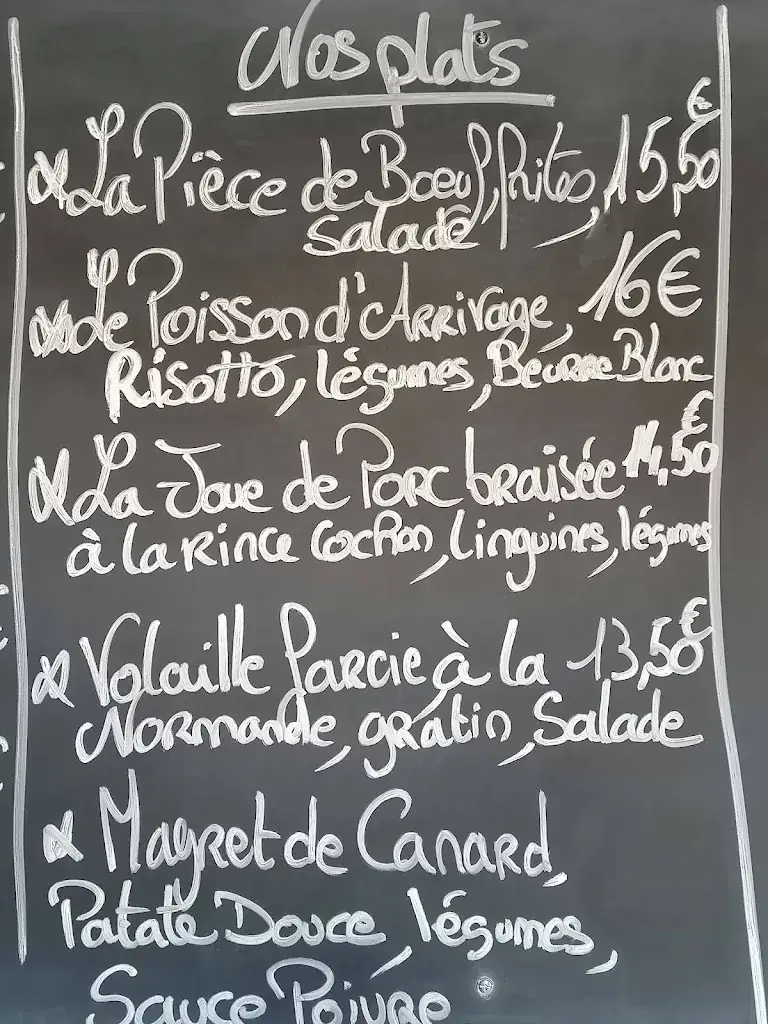 Nos plats
La Pièce de Boeuf, frites, 15,50€
salade
Le Poisson d'Arrivage, 16€
Risotto, légumes, Beurre Blanc
La Joue de Porc braisée 14,50€
à la Rince Cochon, linguines, légumes
Volaille farcie à la 13,50€
Normande, gratin, Salade
Magret de Canard,
Patate Douce, légumes,
Sauce Poivre